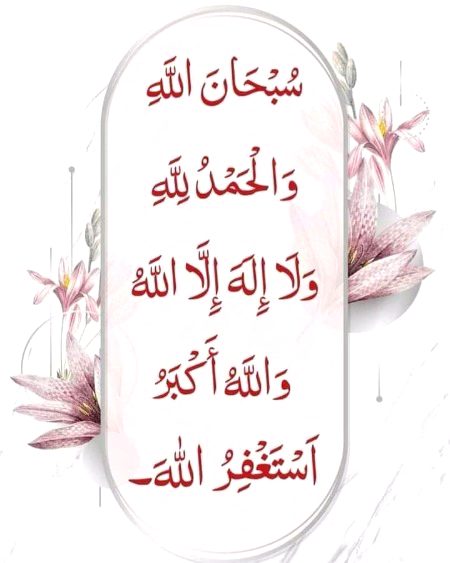 سُبْحَانَ اللَّهِ
وَالْحَمْدُ لِلَّهِ
وَلَا إِلَهَ إِلَّا اللَّهُ
وَاللَّهُ أَكْبَرُ
اَسْتَغْفِرُ اللهَ۔